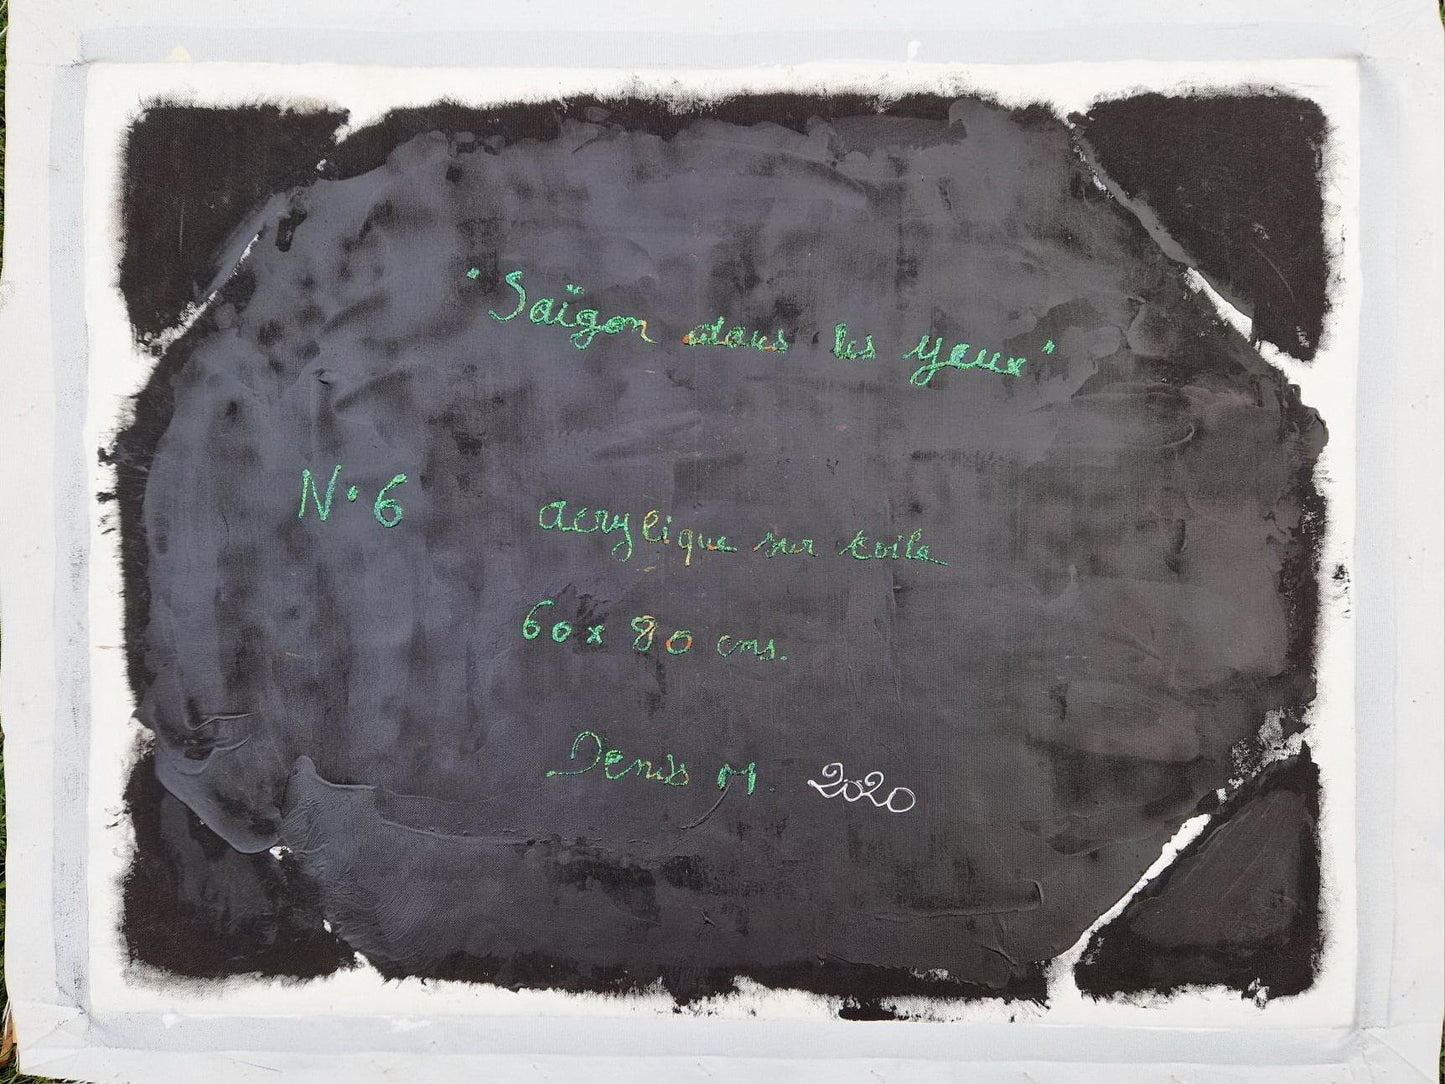 "Saïgon dans les yeux"
N°6 acrylique sur toile
60 x 80 cms.
Denis M. 2020